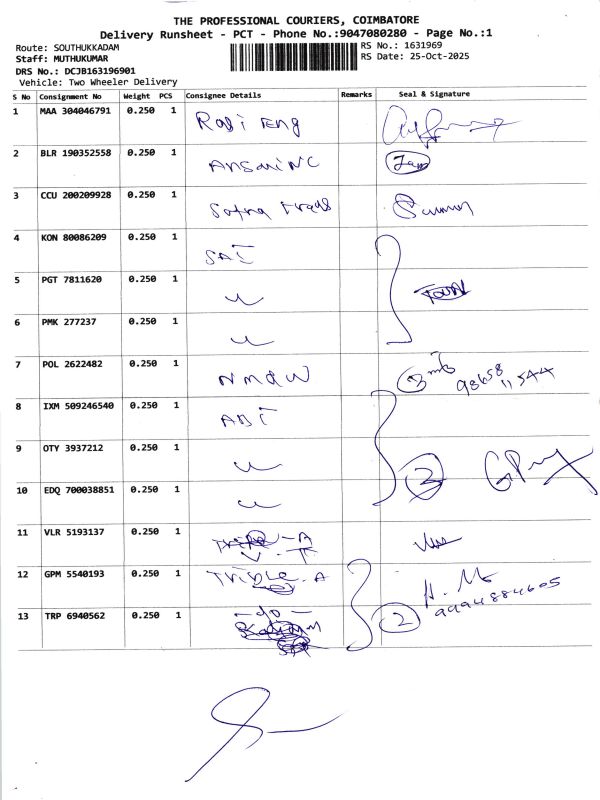 THE PROFESSIONAL COURIERS, COIMBATORE
Delivery Runsheet - PCT - Phone No.:9047080280 - Page No.:1
Route: SOUTHUKKADAM
RS No.: 1631969
Staff: MUTHUKUMAR
RS Date: 25-Oct-2025
DRS No.: DCJB163196901
Vehicle: Two Wheeler Delivery
S No Consignment No Weight PCS Consignee Details Remarks Seal & Signature
1 MAA 304046791 0.250 1 Eng
2 BLR 190352558 0.250 1
3 CCU 200209928 0.250 1
4 KON 80086209 0.250 1
5 PGT 7811620 0.250 1
6 PMK 277237 0.250 1
7 POL 2622482 0.250 1 98658 11544
8 IXM 509246540 0.250 1
9 OTY 3937212 0.250 1 3
10 EDQ 700038851 0.250 1
11 VLR 5193137 0.250 1
12 GPM 5540193 0.250 1 Triple.A
13 TRP 6940562 0.250 1 -do- 2 9994884605